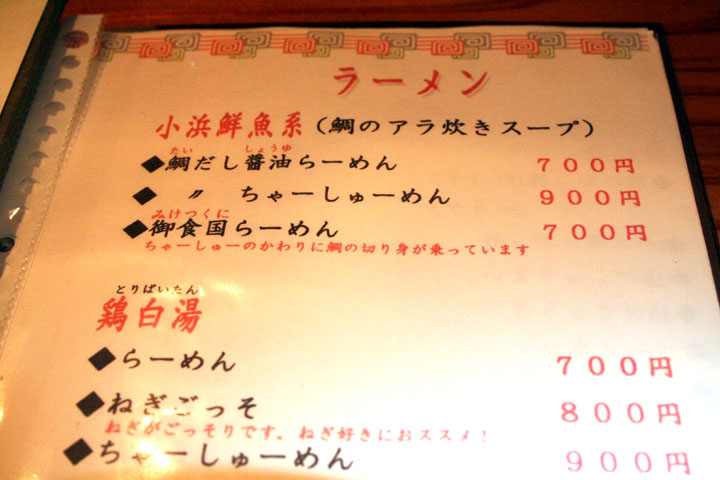 ラーメン
小浜鮮魚系(鯛のアラ炊きスープ)
たい しょうゆ
◆鯛だし醤油らーめん 700円
◆ 〃 ちゃーしゅーめん 900円
みけつくに
◆御食国らーめん 700円
ちゃーしゅーのかわりに鯛の切り身が乗っています
とりぱいたん
鶏白湯
◆らーめん 700円
◆ねぎごっそ 800円
ねぎがごっそりです。ねぎ好きにおススメ!
◆ちゃーしゅーめん 900円